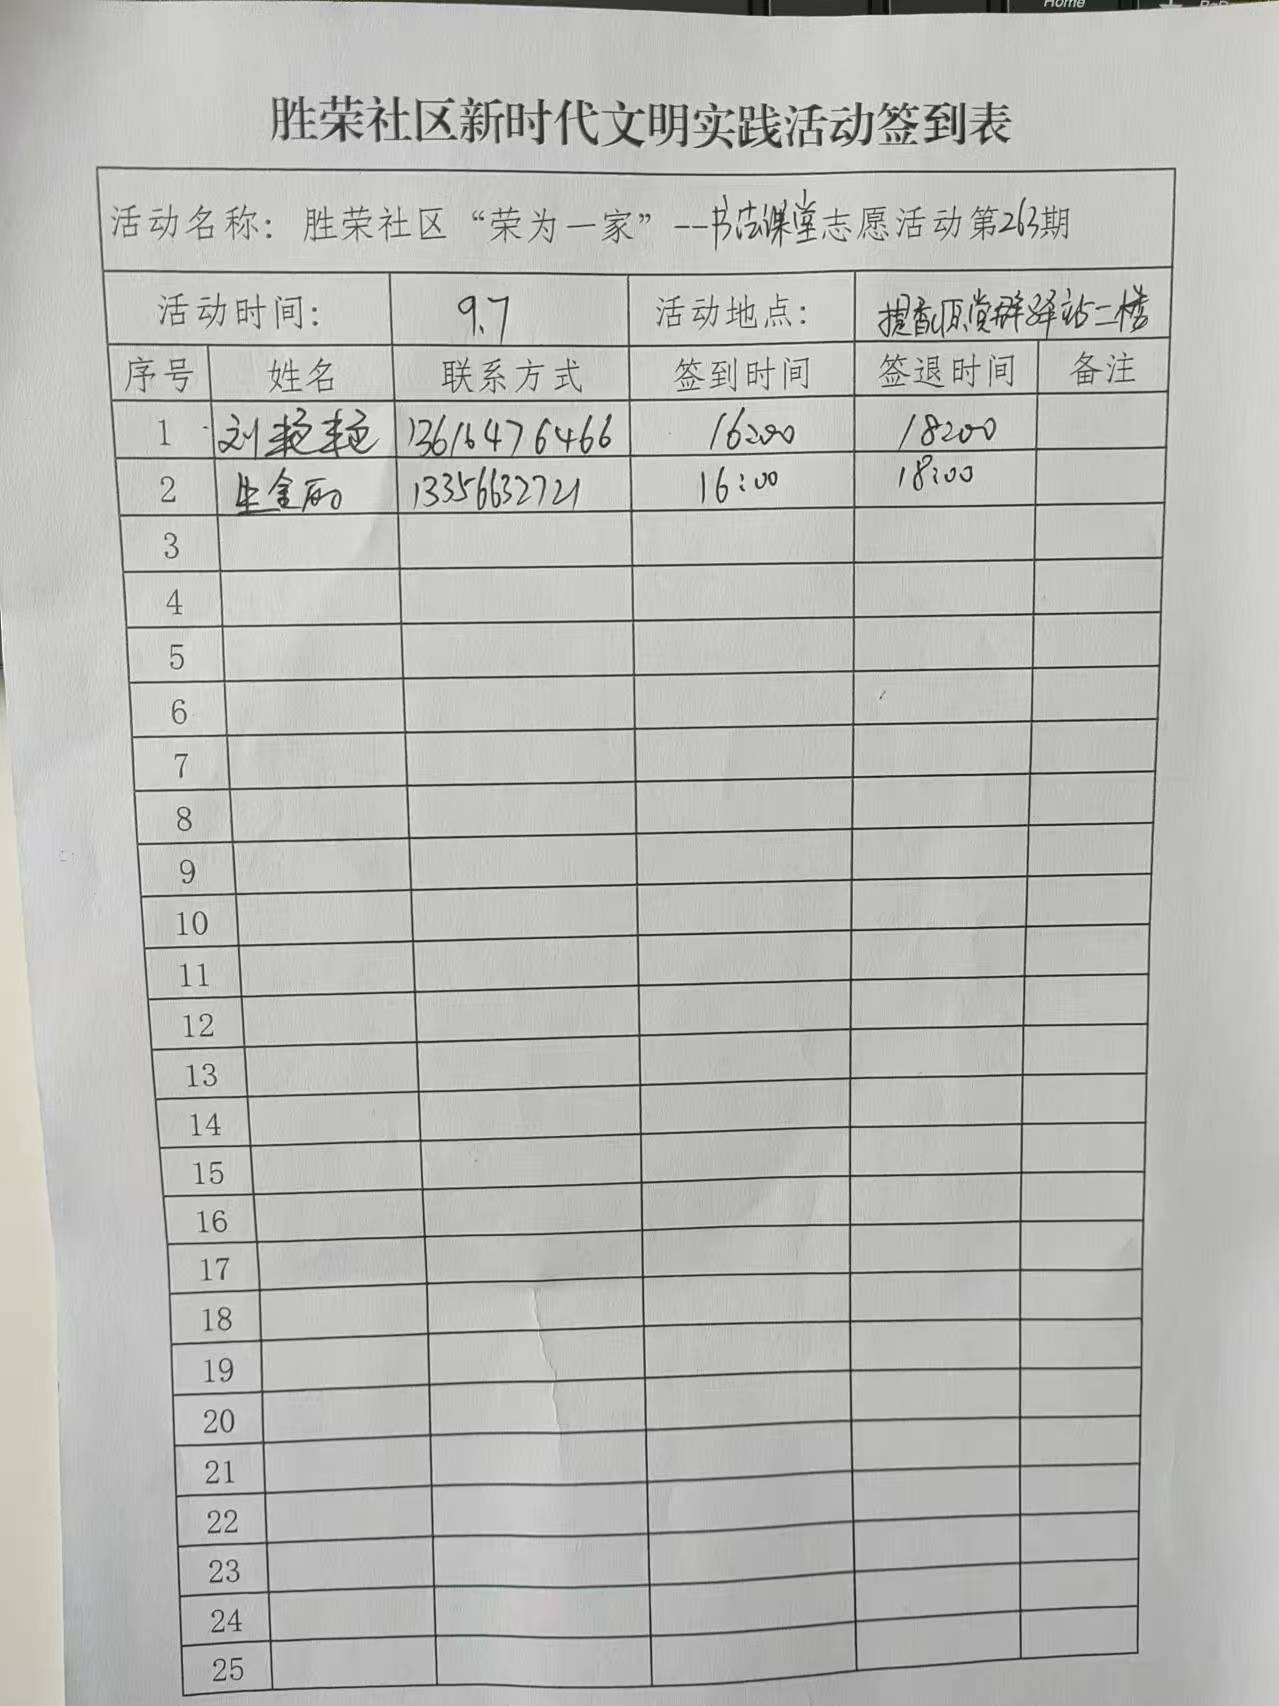 Home
胜荣社区新时代文明实践活动签到表
活动名称：胜荣社区“荣为一家”--书法课堂志愿活动第263期
活动时间： 9.7 活动地点： 提香原党群驿站二楼
序号 姓名 联系方式 签到时间 签退时间 备注
1 刘艳艳 13616476466 16:00 18:00
2 生金丽 13356632721 16:00 18:00
3
4
5
6
7
8
9
10
11
12
13
14
15
16
17
18
19
20
21
22
23
24
25